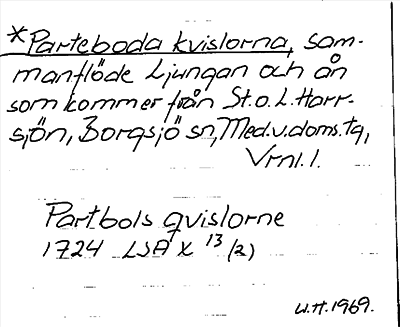 *Parteboda kvislorna, sam-
manflöde Ljungan och ån
som kommer från St.o.L.Harr-
sjön, Borgsjö sn, Med.v.doms.tg,
Vrnl.l.
Partbols qvislorne
1724 LSA X 13/(2)
W.H.1969.